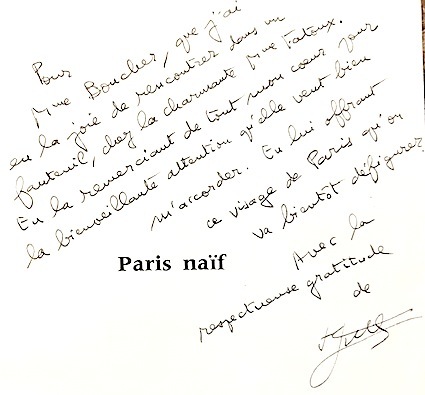 Pour
Mme Boucher, que j'ai
eu la joie de rencontrer dans un
fauteuil, chez la charmante Mme Fatoux.
En la remerciant de tout mon cœur pour
la bienveillante attention qu'elle veut bien
m'accorder. En lui offrant
ce visage de Paris qu'on
va bientôt défigurer
Paris naïf
Avec la
respectueuse gratitude
de